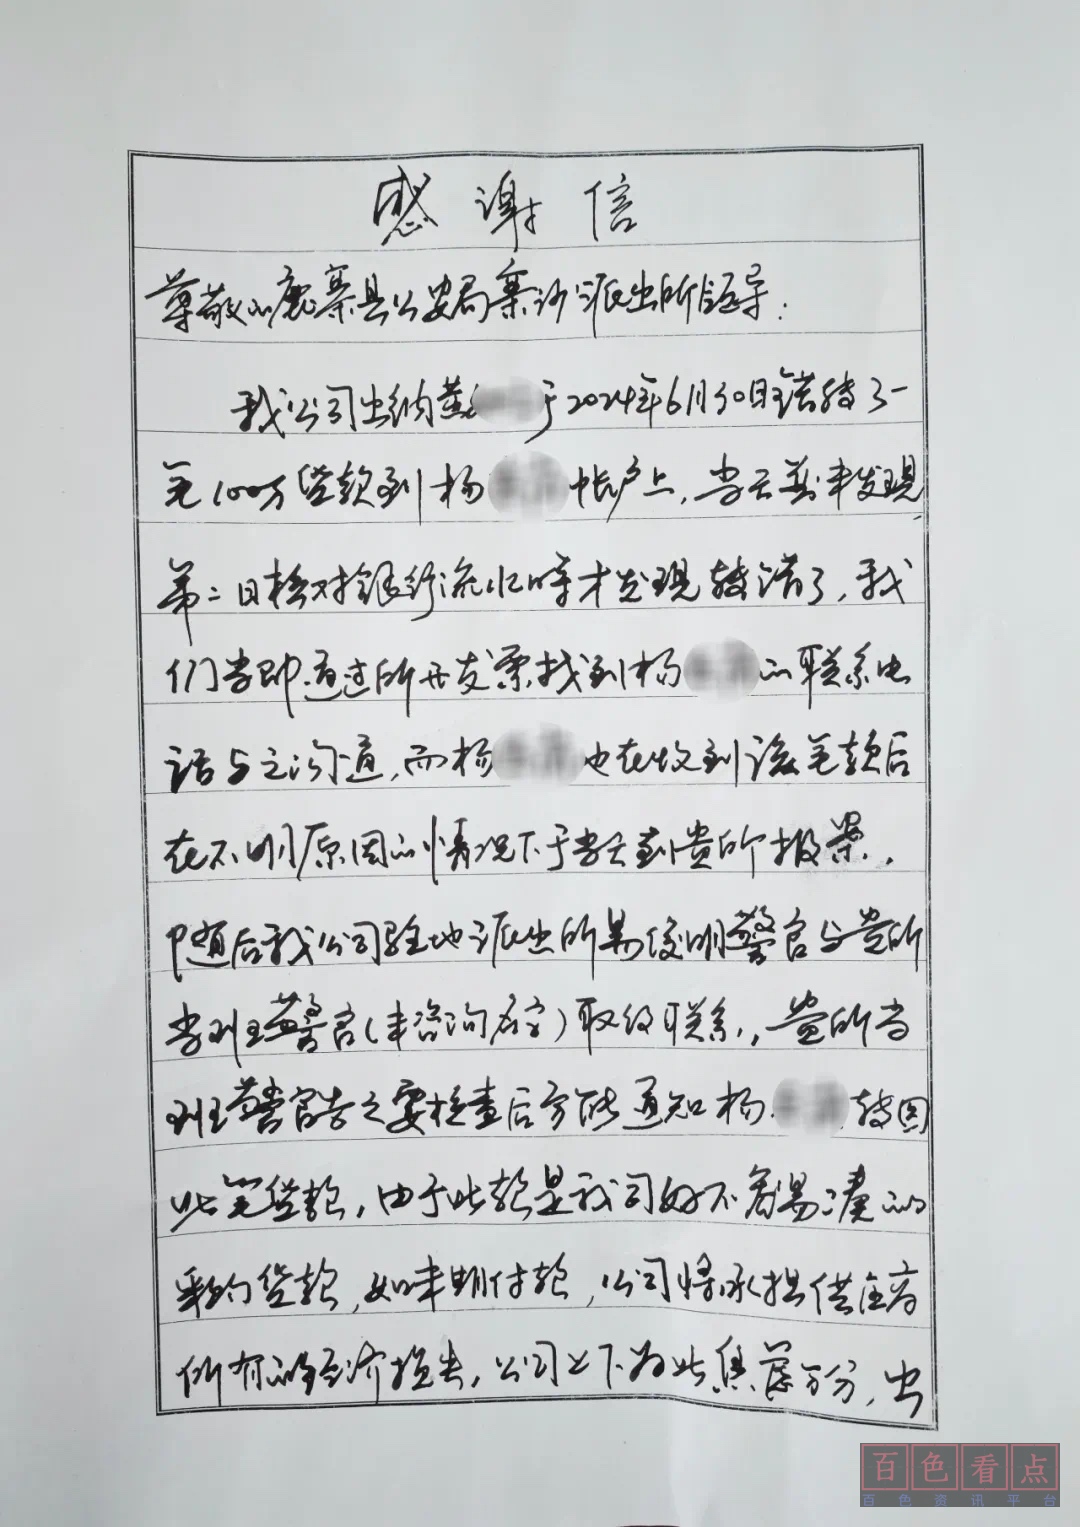 感谢信
尊敬的鹿寨县公安局寨沙派出所领导：
我公司出纳黄 于2024年6月30日错转了一
笔100万货款到杨 帐户上，当天并未发现，
第二日核对银行流水时才发现转错了，我
们当即通过所开发票找到杨 的联系电
话与之沟通，而杨 也在收到该笔款后
在不明原因的情况下于当天到贵所报案，
随后我公司驻地派出所易俊明警官与贵所
当班警官（未咨询名字）取得联系，贵所当
班警官告之要检查后方能通知杨 转回
此笔货款，由于此款是我司好不容易凑的
采购货款，如未期付款，公司将承担供应商
所有的经济损失，公司上下为此焦虑万分，出
百色看点
百色资讯平台